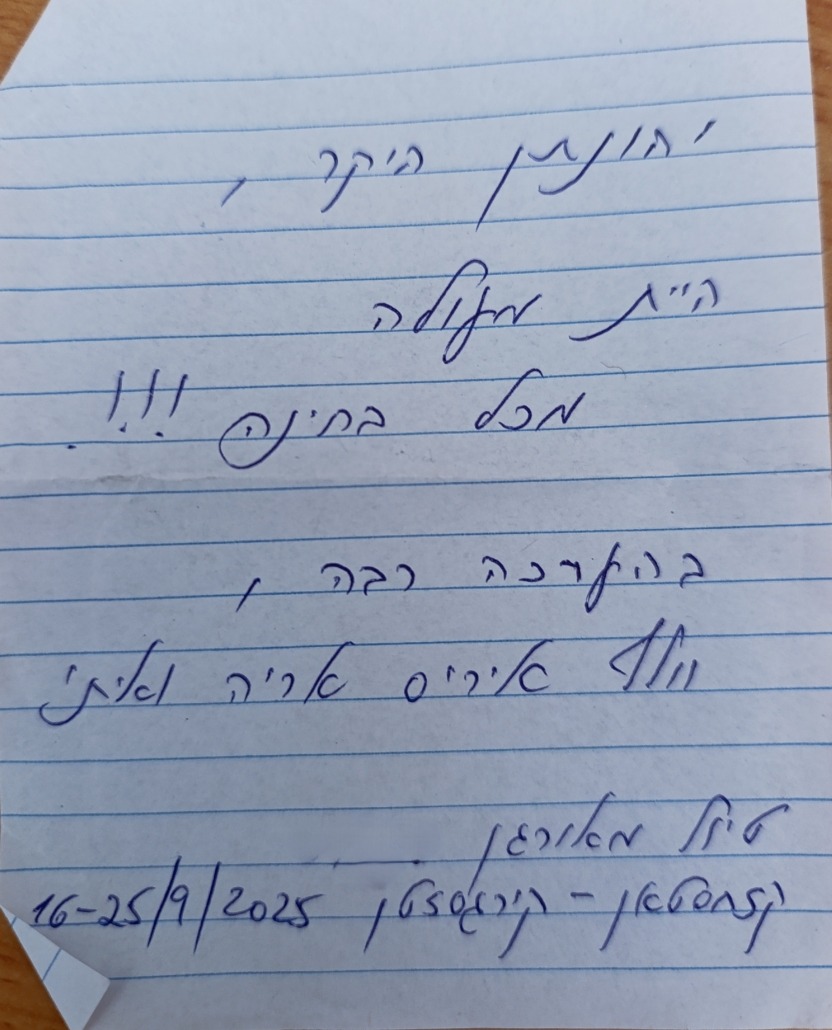 יהונתן היקר,
היית מעולה
מכל בחינה !!!
בהערכה רבה,
וולף איריס אריה ואיתי
טיול מאורגן
קזחסטאן - קירגסטן 16-25/9/2025